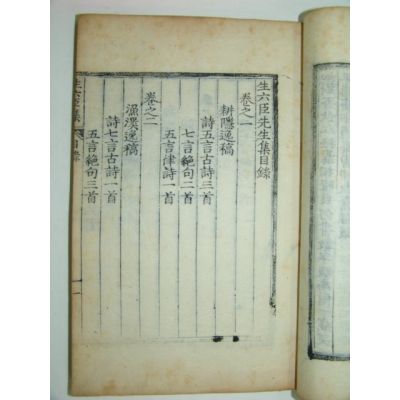 生六臣先生集目錄
卷之一
耕隱逸稿
詩五言古詩三首
七言絶句二首
五言律詩一首
卷之二
漁溪逸稿
詩七言古詩一首
五言絶句三首
生六臣集
目錄